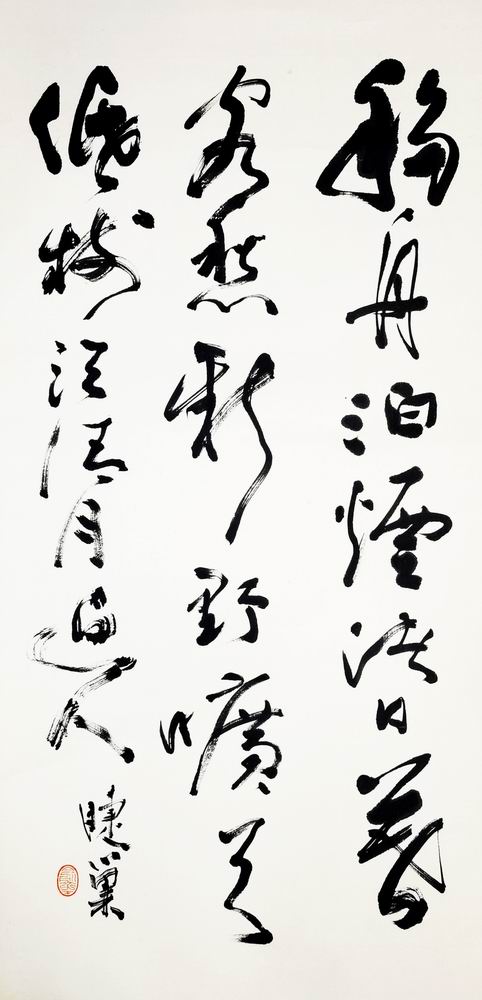 移舟泊煙渚日暮
客愁新野曠天
低樹江清月近人
睫巢